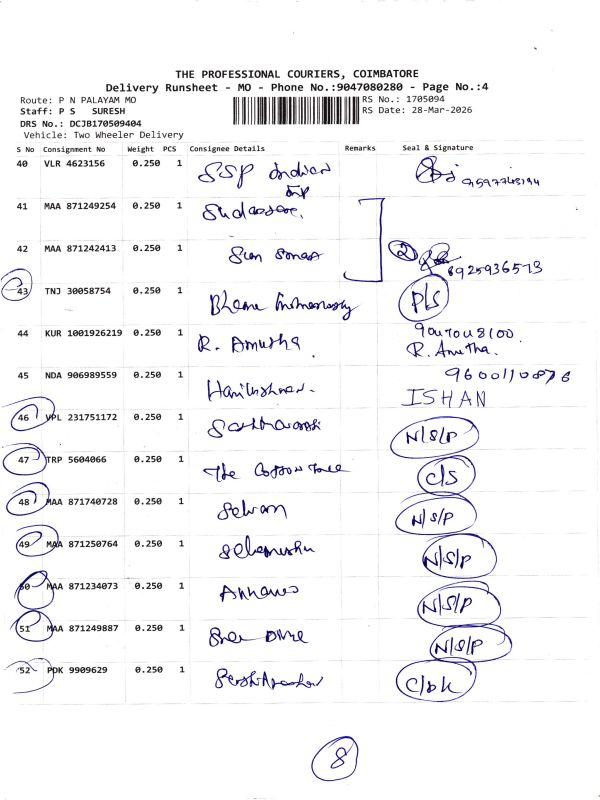 THE PROFESSIONAL COURIERS, COIMBATORE
Delivery Runsheet - MO - Phone No.:9047080280 - Page No.:4
Route: P N PALAYAM MO
RS No.: 1705094
Staff: P S SURESH
RS Date: 28-Mar-2026
DRS No.: DCJB170509404
Vehicle: Two Wheeler Delivery
S No Consignment No Weight PCS Consignee Details Remarks Seal & Signature
40 VLR 4623156 0.250 1 SSP Indian
41 MAA 871249254 0.250 1
42 MAA 871242413 0.250 1 2
8925936573
43 TNJ 30058754 0.250 1 P/S
44 KUR 1001926219 0.250 1 R. Amutha 9047048100
R. Amutha.
45 NDA 906989559 0.250 1 Harikrishnan. 9600110876
ISHAN
46 VPL 231751172 0.250 1 N/S/P
47 TRP 5604066 0.250 1 The Cotton Tree C/S
48 MAA 871740728 0.250 1 Selvam N/S/P
49 MAA 871250764 0.250 1 N/S/P
50 MAA 871234073 0.250 1 N/S/P
51 MAA 871249887 0.250 1 N/S/P
52 PDK 9909629 0.250 1
8